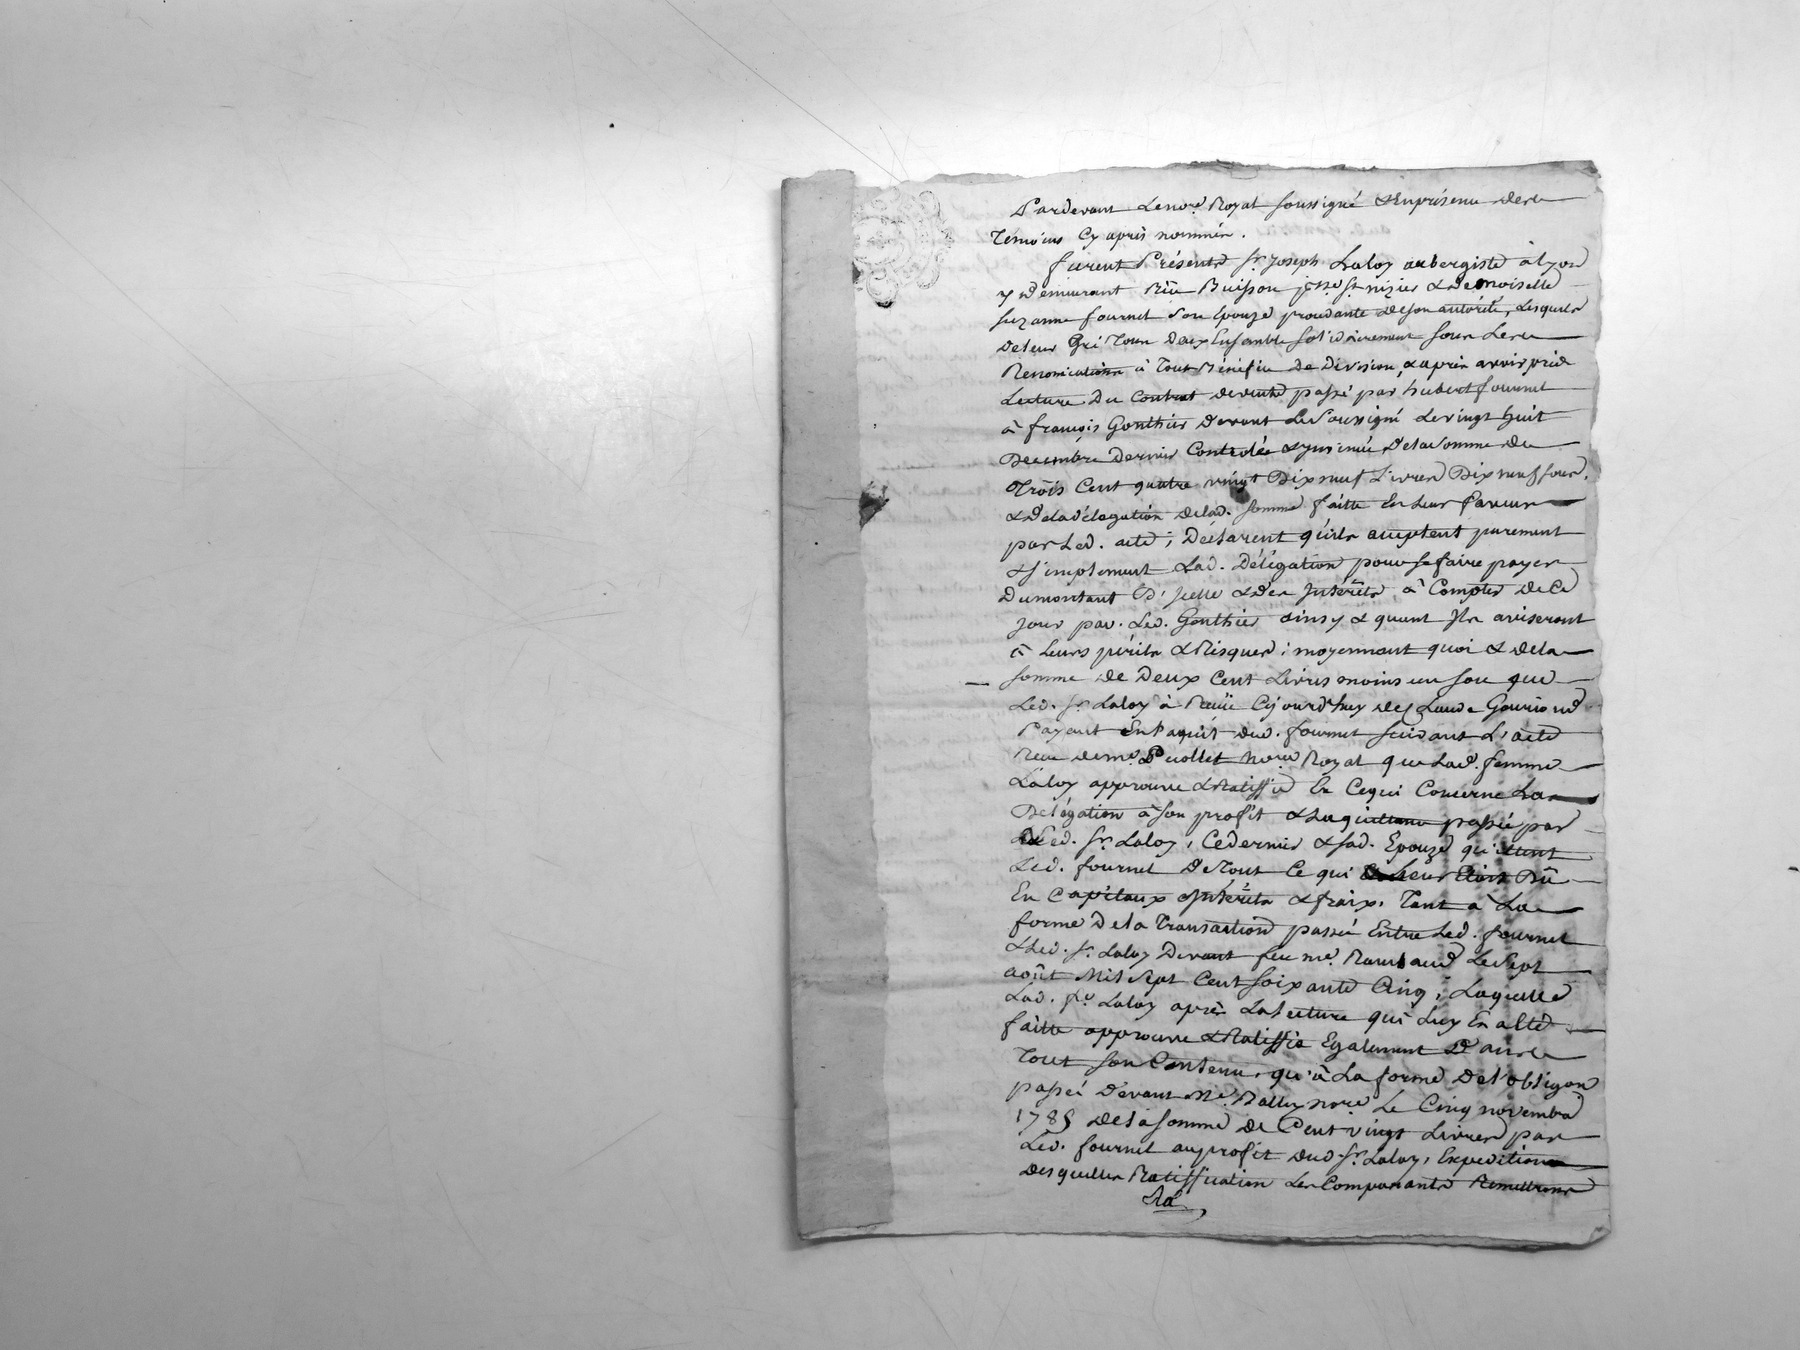 Pardevant Le no.re Royal soussigné & En présence des
Témoins Cy après nommés.
furent Présents S.r Joseph Laloy aubergiste à Lyon
y Demeurant Rüe Buisson p.sse S.t nizier & Demoiselle
Suzanne fournel Son Epouze procédante de son autorité, Lesquels
De leur Gré Tous Deux Ensemble solidairement sous Les
Renonciations à Tout Bénéfice De Division, & après avoir pris
Lecture Du Contrat de vente passé par hubert fournel
à françois Gonthier Devant Le Soussigné Le vingt huit
Décembre Dernier Controlé & ynsinué De la Somme De
Trois Cent quatre vingt Dix neuf Livres Dix neuf sous,
& De la délégation de lad. somme faitte En Leur faveur
par Led. acte ; Déclarent qu'ils acceptent purement
& simplement Lad. Délégation pour se faire payer
Du montant D'jcelle & Des Jntérêts, à Compter de Ce
Jour par Led. Gonthier ainsy & quant Ils aviseront
à Leurs périls & Risques ; moyennant quoi & de la
somme de Deux Cent Livres moins un sou que
Led. S.r Laloy à Reçüe Cejourd'huy de Claude
Payant En l'aquit dud. fournel suivant L'acte
Reçu de m.e no.re Royal que Lad. femme
Laloy approuve & Ratiffie En Ce qui Concerne La
Délégation à Son profit & La quittance passée par
Led. S.r Laloy, Ce dernier & sad. Epouze quittent
Led. fournel De Tout Ce qui Leur Etoit Dû
En Capitaux Jntérêts & fraix, Tant à La
forme De la Transaction passée Entre Led. fournel
& Led. S.r Laloy Devant feu m.e Le Sept
août Mil Sept Cent Soixante Cinq, Laquelle
Lad. f.e Laloy après La Lecture qui Luy En a Eté
faitte approuve & Ratiffie Egalement Dans
Tout Son Contenu, qu'à La forme De l'obligon
passée Devant M.e no.re Le Cinq novembre
1785 de la somme De Cent vingt Livres par
Led. fournel au profit dud. S.r Laloy, Expeditions
Desquelles Ratiffication Les Comparants Remettront